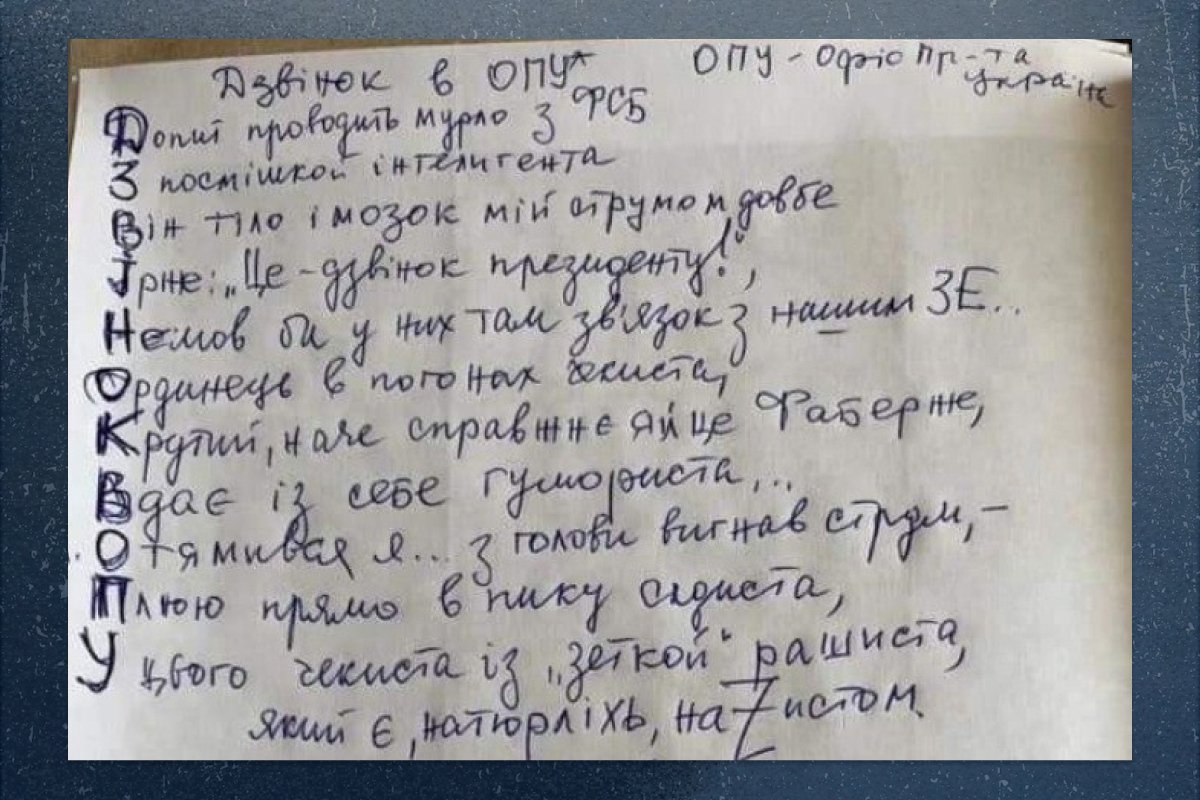 Дзвінок в ОПУ* ОПУ - Офіс Пр-та
України
Допит проводить мурло з ФСБ
З посмішкой інтелигента
Він тіло і мозок мій струмом довбе
Ірже: „Це - дзвінок президенту!",
Немов би у них там зв'язок з нашим ЗЕ...
Ординець в погонах чекиста,
Крутий, наче справжнє яйце Фаберже,
Вдає із себе гумориста...
Отямився я... з голови вигнав струм, –
Плюю прямо в пику садиста,
У цього чекиста із „зеткой" рашиста,
який є, натюрліхь, наZистом.